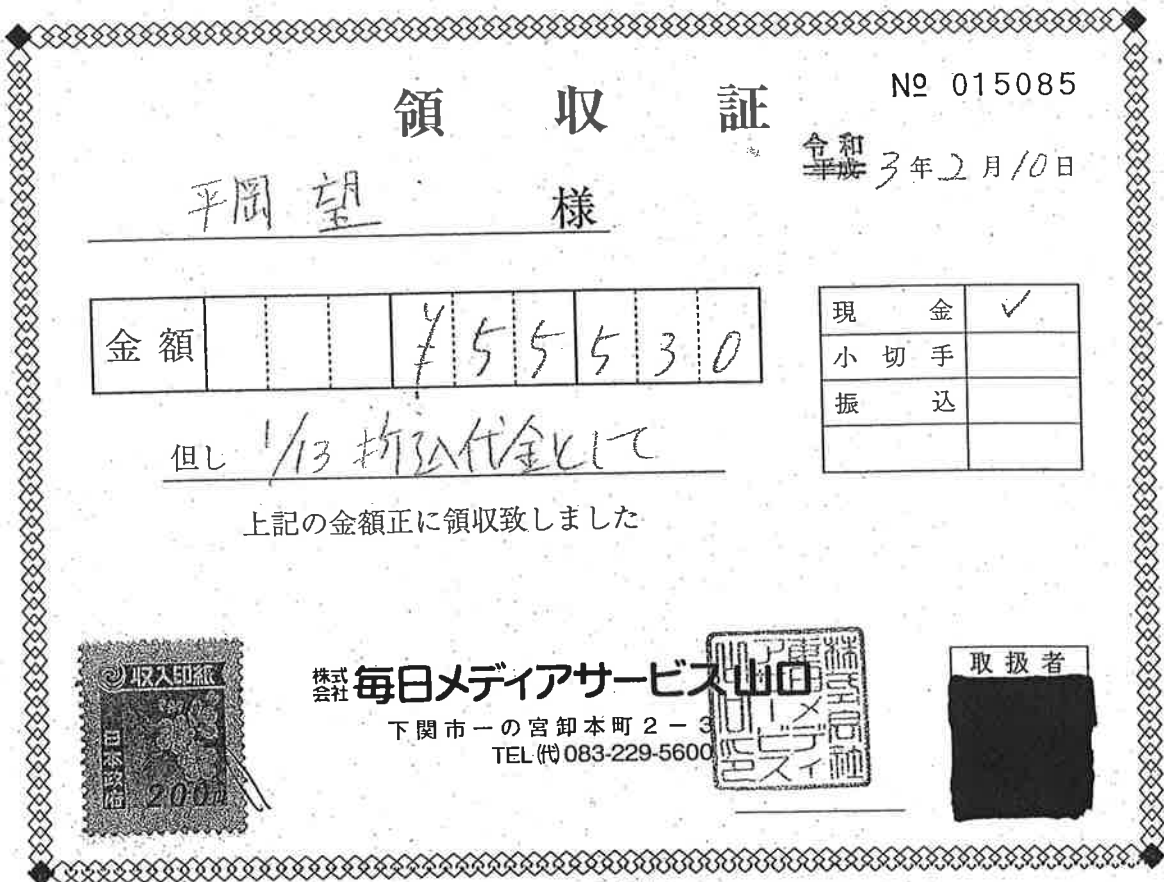 № 015085
領収証
令和
平成 3年2月10日
平岡 望 様
金額 ¥55530
現金 ✓
小切手
振込
但し 1/13 折込代金として
上記の金額正に領収致しました
収入印紙
日本政府
200円
株式会社 毎日メディアサービス山口
下関市一の宮卸本町2-3
TEL(代)083-229-5600
株式会社毎日メディアサービス山口之印
取扱者